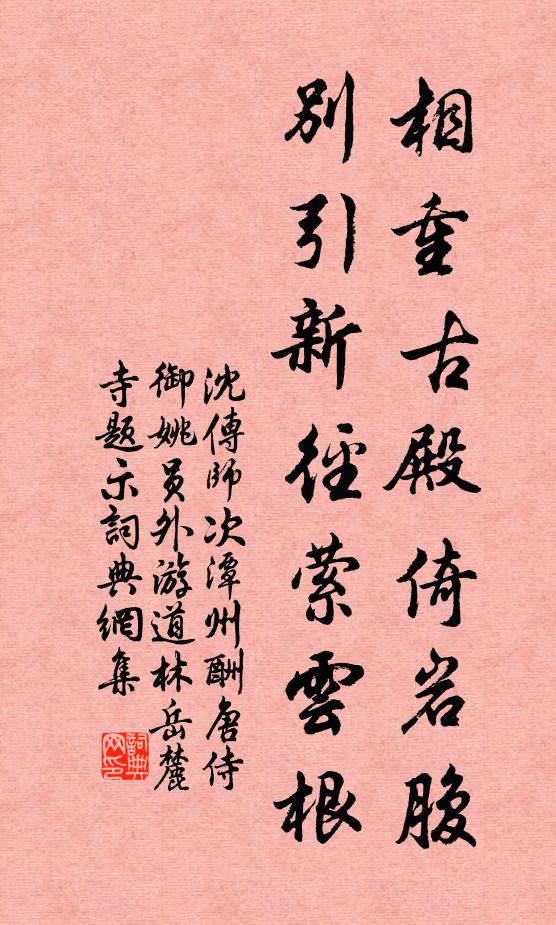 相重古殿倚岩腹
別引新徑縈雲根
沈傳師次潭州酬唐侍
御姚員外游道林岳麓
寺題示詞典網集
詞典
网印